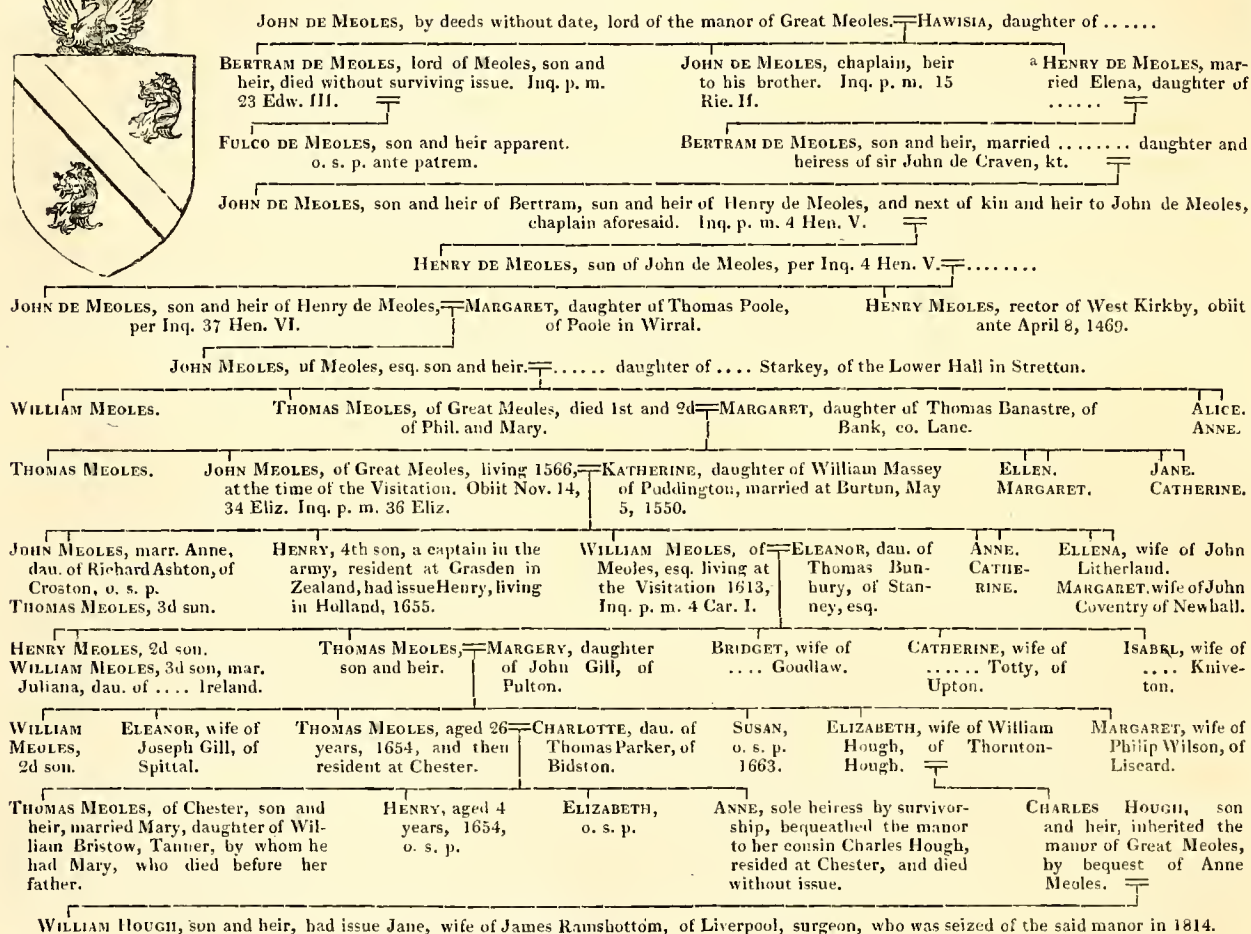 JOHN DE MEOLES, by deeds without date, lord of the manor of Great Meoles.
HAWISIA, daughter of ......
BERTRAM DE MEOLES, lord of Meoles, son and
heir, died without surviving issue. Inq. p. m.
23 Edw. III.
JOHN DE MEOLES, chaplain, heir
to his brother. Inq. p. m. 15
Ric. II.
a HENRY DE MEOLES, mar-
ried Elena, daughter of
......
FULCO DE MEOLES, son and heir apparent.
o. s. p. ante patrem.
BERTRAM DE MEOLES, son and heir, married ........ daughter and
heiress of sir John de Craven, kt.
JOHN DE MEOLES, son and heir of Bertram, son and heir of Henry de Meoles, and next of kin and heir to John de Meoles,
chaplain aforesaid. Inq. p. m. 4 Hen. V.
HENRY DE MEOLES, son of John de Meoles, per Inq. 4 Hen. V. ........
JOHN DE MEOLES, son and heir of Henry de Meoles,
per Inq. 37 Hen. VI.
MARGARET, daughter of Thomas Poole,
of Poole in Wirral.
HENRY MEOLES, rector of West Kirkby, obiit
ante April 8, 1469.
JOHN MEOLES, of Meoles, esq. son and heir.
...... daughter of .... Starkey, of the Lower Hall in Stretton.
WILLIAM MEOLES.
THOMAS MEOLES, of Great Meoles, died 1st and 2d
of Phil. and Mary.
MARGARET, daughter of Thomas Banastre, of
Bank, co. Lanc.
ALICE.
ANNE.
THOMAS MEOLES.
JOHN MEOLES, of Great Meoles, living 1566,
at the time of the Visitation. Obiit Nov. 14,
34 Eliz. Inq. p. m. 36 Eliz.
KATHERINE, daughter of William Massey
of Puddington, married at Burton, May
5, 1550.
ELLEN.
MARGARET.
JANE.
CATHERINE.
JOHN MEOLES, marr. Anne,
dau. of Richard Ashton, of
Croston, o. s. p.
THOMAS MEOLES, 3d son.
HENRY, 4th son, a captain in the
army, resident at Grasden in
Zealand, had issue Henry, living
in Holland, 1655.
WILLIAM MEOLES, of
Meoles, esq. living at
the Visitation 1613,
Inq. p. m. 4 Car. I.
ELEANOR, dau. of
Thomas Bun-
bury, of Stan-
ney, esq.
ANNE.
CATHE-
RINE.
ELLENA, wife of John
Litherland.
MARGARET, wife of John
Coventry of Newhall.
HENRY MEOLES, 2d son.
WILLIAM MEOLES, 3d son, mar.
Juliana, dau. of .... Ireland.
THOMAS MEOLES,
son and heir.
MARGERY, daughter
of John Gill, of
Pulton.
BRIDGET, wife of
.... Goudlaw.
CATHERINE, wife of
...... Totty, of
Upton.
ISABEL, wife of
.... Knive-
ton.
WILLIAM
MEOLES,
2d son.
ELEANOR, wife of
Joseph Gill, of
Spittal.
THOMAS MEOLES, aged 26
years, 1654, and then
resident at Chester.
CHARLOTTE, dau. of
Thomas Parker, of
Bidston.
SUSAN,
o. s. p.
1663.
ELIZABETH, wife of William
Hough, of Thornton-
Hough.
MARGARET, wife of
Philip Wilson, of
Liscard.
THOMAS MEOLES, of Chester, son and
heir, married Mary, daughter of Wil-
liam Bristow, Tanner, by whom he
had Mary, who died before her
father.
HENRY, aged 4
years, 1654,
o. s. p.
ELIZABETH,
o. s. p.
ANNE, sole heiress by survivor-
ship, bequeathed the manor
to her cousin Charles Hough,
resided at Chester, and died
without issue.
CHARLES HOUGH, son
and heir, inherited the
manor of Great Meoles,
by bequest of Anne
Meoles.
WILLIAM HOUGH, son and heir, had issue Jane, wife of James Ramsbottom, of Liverpool, surgeon, who was seized of the said manor in 1814.